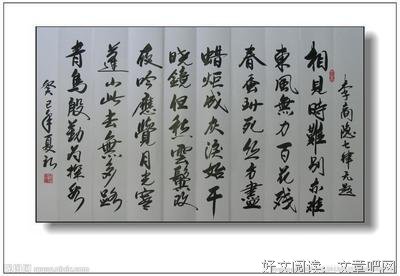 李商隐七律无题
相見時難別亦難
東風無力百花殘
春蚕到死丝方盡
蜡炬成灰淚始干
晓鏡但愁雲鬓改
夜吟應覺月光寒
蓬山此去無多路
青鳥殷勤为探看
癸巳年夏
好文阅读：文章吧网